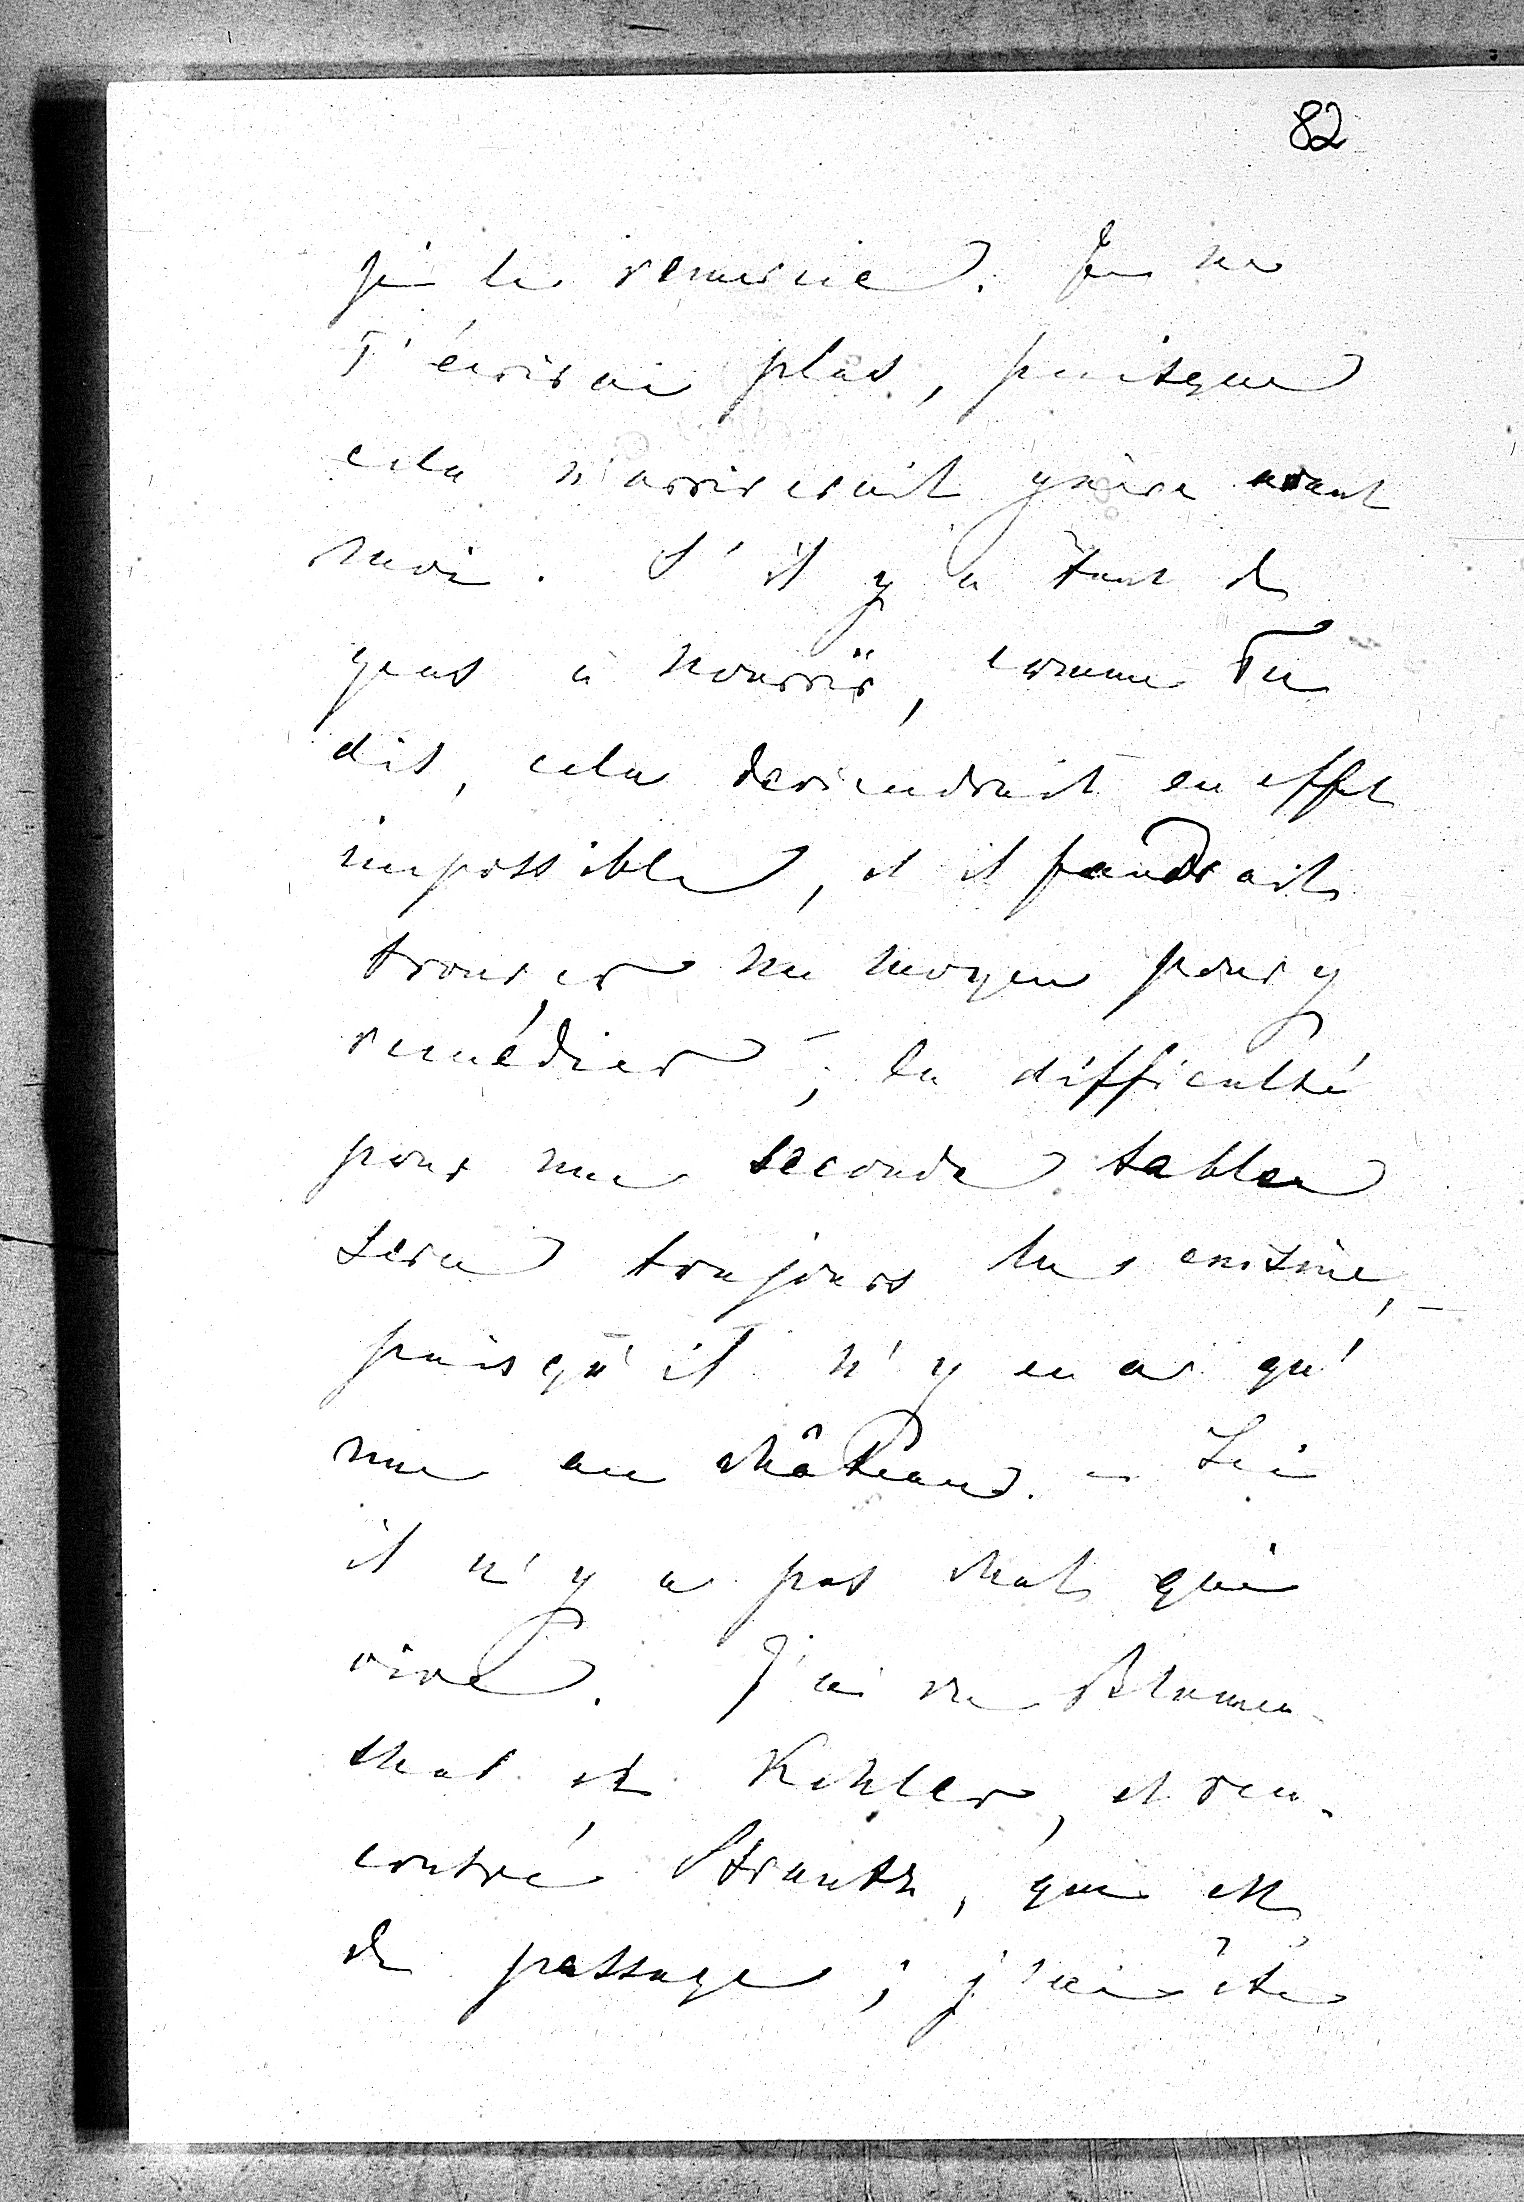 82
je la remercie. Je ne
T'écrirai plus, puisque
cela n'arriverait guère avant
moi. S'il y a tant de
gens à nourrir, comme Tu
dis, cela deviendrait en effet
impossible, et il faudrait
trouver un moyen pour y
remédier; la difficulté
pour une seconde table
sera toujours la cuisine,
puisqu'il n'y en a qu'
une au château. – Ici
il n'y a pas chat qui
vive. J'ai vu Blumen-
thal et Kohler, et ren-
contré Strantz, qui est
de passage; j'ai été